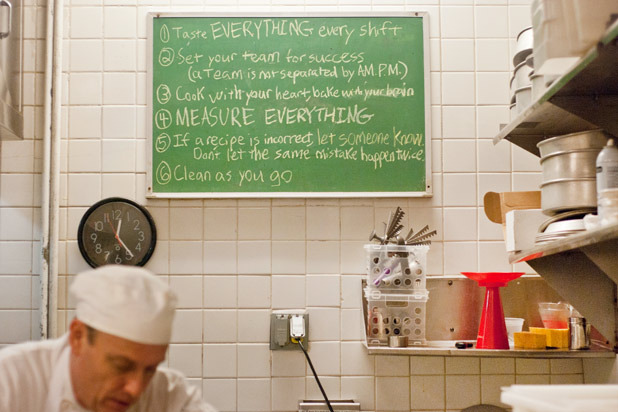 ① Taste EVERYTHING every shift
② Set your team for success
(a Team is not separated by A.M. P.M.)
③ Cook with your heart, bake with your brain
④ MEASURE EVERYTHING
⑤ If a recipe is incorrect, let someone know.
Don't let the same mistake happen twice.
⑥ Clean as you go